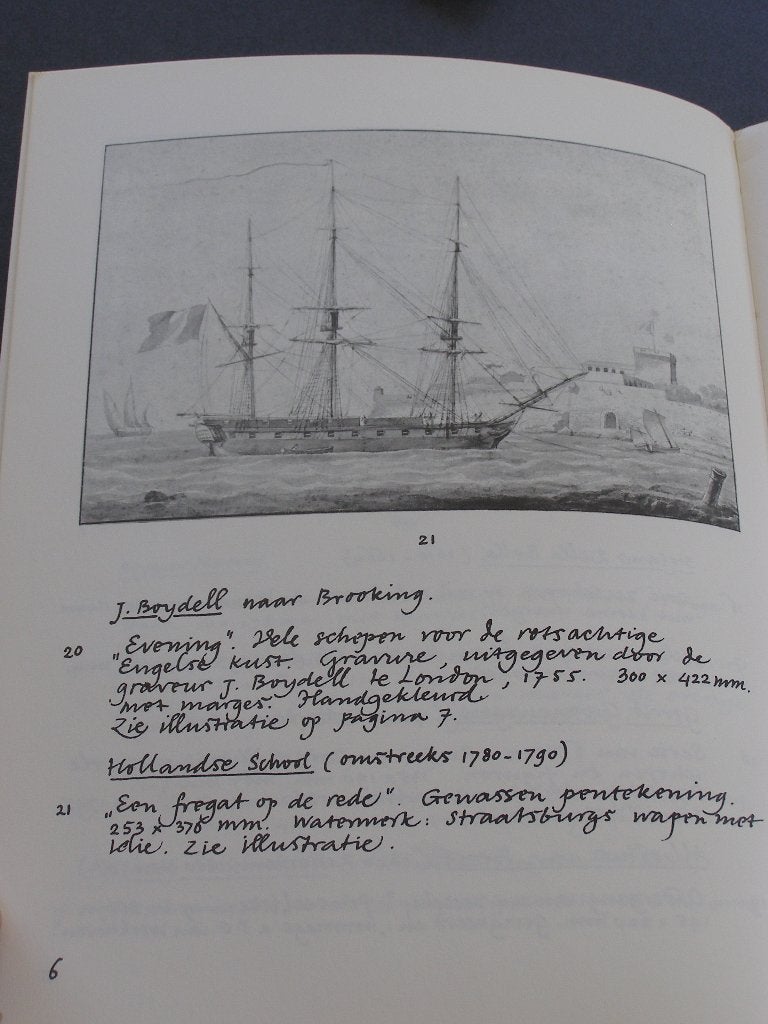 21
J. Boydell naar Brooking.
20 „Evening". Vele schepen voor de rotsachtige
Engelse kust. Gravure, uitgegeven door de
graveur J. Boydell te London, 1755. 300 x 422 mm.
met marges. Handgekleurd
Zie illustratie op pagina 7.
Hollandse School (omstreeks 1780-1790)
21 „Een fregat op de rede". Gewassen pentekening.
253 x 376 mm. Watermerk: Straatsburgs wapen met
lelie. Zie illustratie.
6